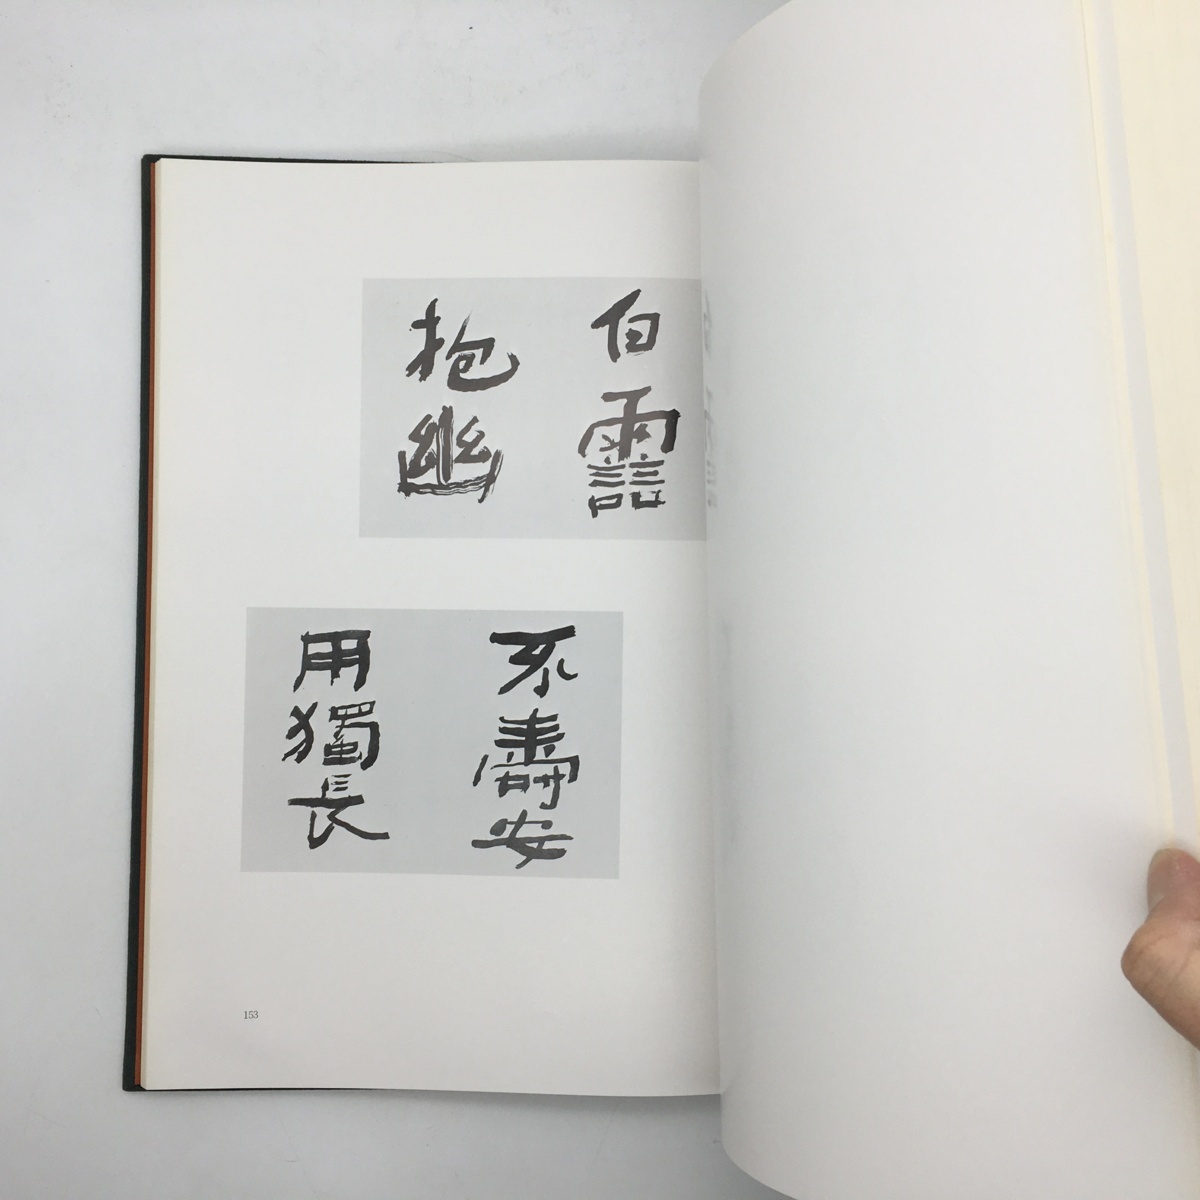 白雲
抱幽
不壽安
用獨長
153